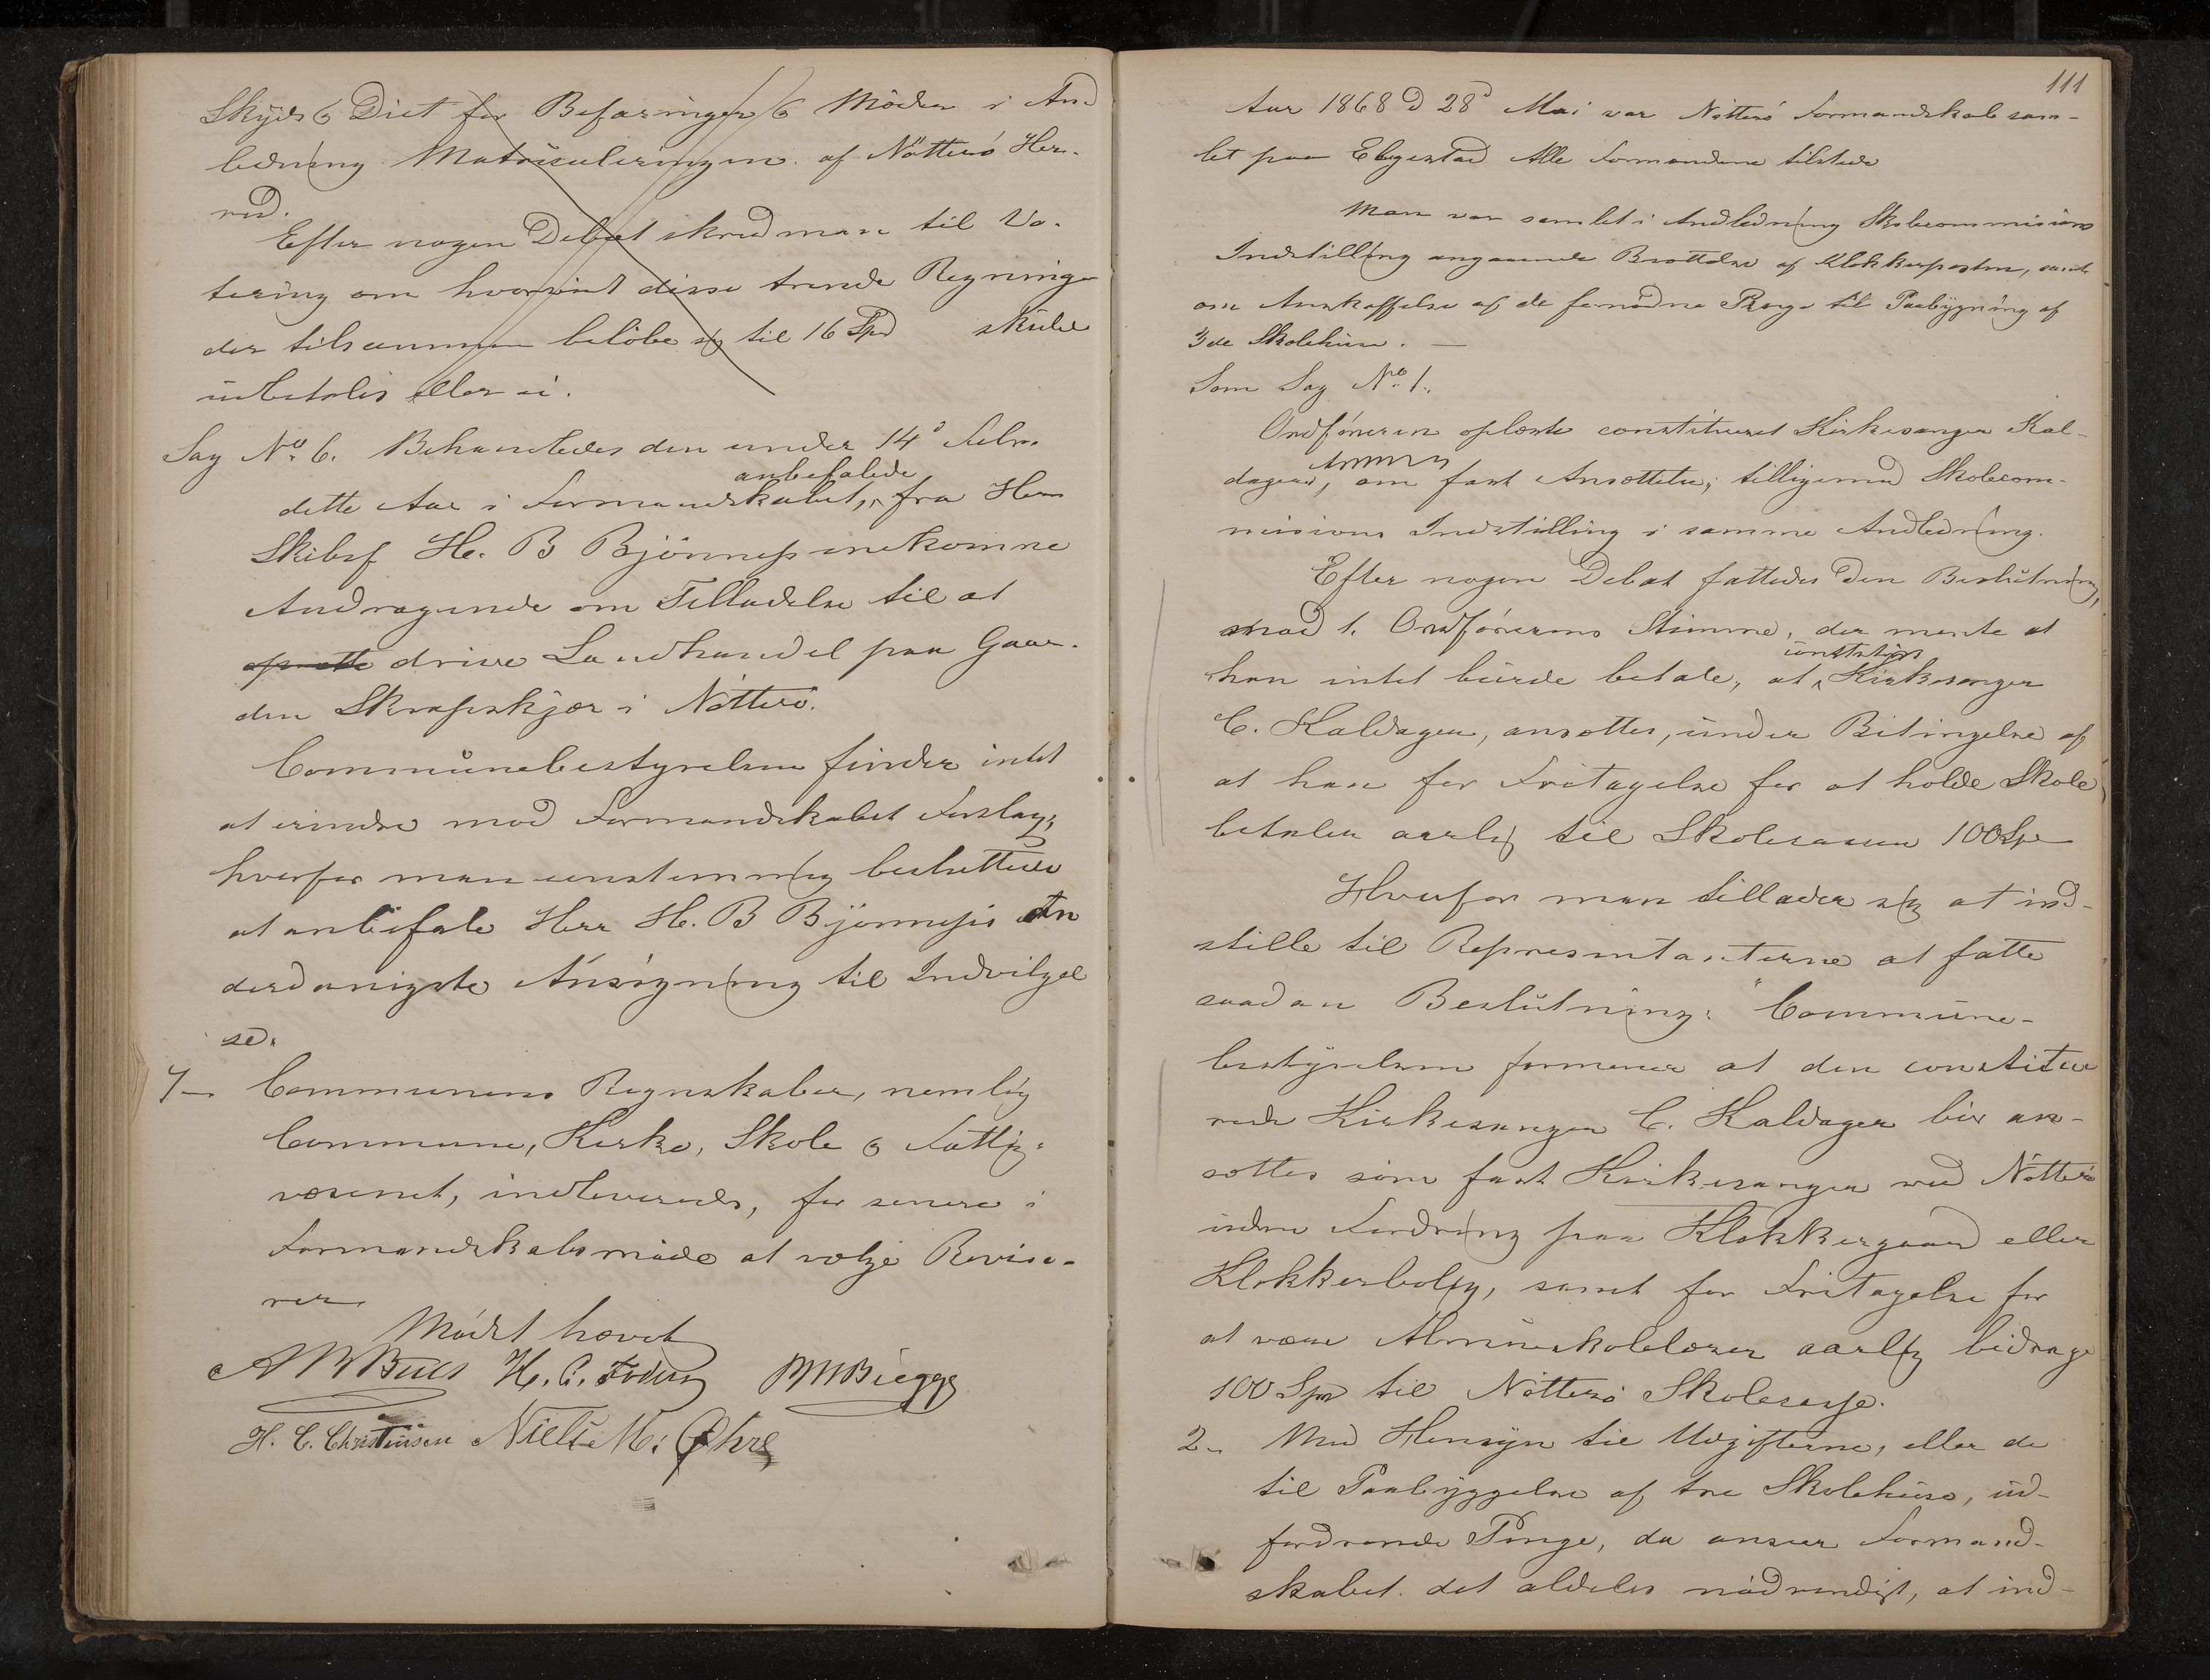 Skyds & Diet for Befaringer & Möder i An-
ledning Matriculeringen af Nötterö Her-
red.
Efter nogen Debat skred man til Vo-
tering om hvorvidt disse trende Regninger
der tilsammen belöbe sig til 16 Spd skulde
udbetales eller ei.
Sag No. 6. Behandledes den under 14d Febr.
anbefalede
dette Aar i Formandskabet, fra Herr
Skibsf H. B Bjönness indkomne
Andragende om Tilladelse til at
oprette drive Landhandel paa Gaar-
den Skrapeskjær i Nötterö.
Communebestyrelsen finder intet
at erindre mod Formandskabet Forslag,
hvorfor man eenstemmig besluttede
at anbefale Herr H. B Bjönness's
derdanigste Ansögning til Indvilgel
se.
7- Communens Regnskaber, nemlig
Commune, Kirke, Skole & Fattig-
væsenet, indleverede, for senere i
Formandskabsmöde at vælge Reviso-
rer.
Mödet hævet
H. C. Christensen Niels M: Ohre
111
Aar 1868 d 28d Mai var Nötterö Formandskab sam-
let paa Elgestad Alle Formændene tilstede
Man var samlet i Andledning Skolecommisions
Indstilling angaaende Besættelse af Klokkerposten, samt
om Anskaffelse af de fornödne Penge til Paabygning af
3de Skolehuse. —
Som Sag No. 1.
Ordföreren oplæste constitueret Kirkesanger Kal-
dagers, om fast Ansættelse, tilligemed Skolecom-
missions Indstilling i samme Andledning.
Efter nogen Debat fattedes den Beslutning,
mod 1. Ordförerens Stimme, der mente at
constituert
han intet burde betale, at Kirkesanger
C. Kaldager, ansættes, under Betingelse af
at han for Fritagelse for at holde Skole
betaler aarlig til Skolecassen 100 Spd
Hvorfor man tillader sig at ind-
stille til Representanterne at fatte
saadan Beslutning: "Commune-
bestyrelsen formener at den constitue
rede Kirkesanger C. Kaldager bör an-
sættes som fast Kirkesanger ved Nötterö
uden Fordring paa Klokkergaard eller
Klokkerbolig, samt for Fritagelse for
at være Almueskolelærer aarlig bidrage
100 Spd til Nötterö Skolecasse.
2- Med Hensyn til Udgifterne, eller de
til Paabyggelse af tre Skolehuse, ud-
fordrende Penge, da anseer Formand-
skabet det aldeles nödvendigt, at ind-